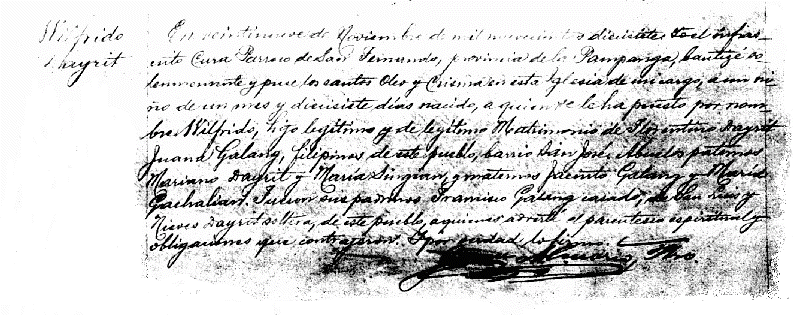 Wilfrido
Dayrit
En veintinueve de Noviembre de mil novecientos diecisiete: Yo el infras-
crito Cura Párroco de San Fernando, provincia de la Pampanga, bauticé so-
lemnemente y puse los santos Oleo y Crisma en esta Iglesia de mi cargo, a un ni-
ño de un mes y diecisiete días nacido, a quien se le ha puesto por nom-
bre Wilfrido, hijo legítimo y de legítimo Matrimonio de Florentino Dayrit
Juana Galang, filipinos de este pueblo, barrio San José; Abuelos paternos
Mariano Dayrit y Maria Singian, y maternos Jacinto Galang y Maria
Gachalian. Fueron sus padrinos Francisco Galang casado, de San Luis y
Nieves Dayrit soltera, de este pueblo, a quienes advertí el parentesco espiritual y
obligaciones que contrajeron. Y por verdad lo firmo